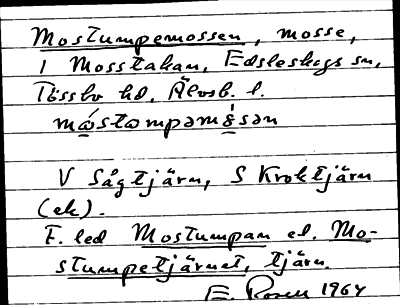 Mostumpemossen, mosse,
i Mosstakan, Edsleskogs sn,
Tössbo hd, Älvsb. l.
mo̱stɷmpəmo̱sən
V Sågtjärn, S Kroktjärn
(ek).
F. led Mostumpan el. Mo-
stumpetjärnet, tjärn.
E. Rosen 1964